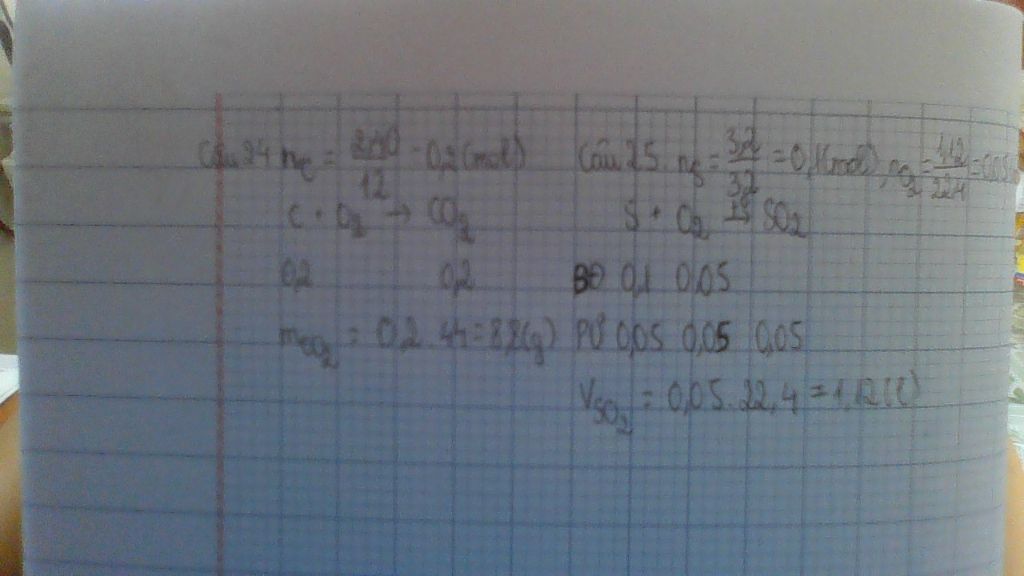 Câu 24 nC = 2,40/12 = 0,2 (mol)
C + O2 → CO2
0,2 0,2
mCO2 = 0,2 . 44 = 8,8 (g)
Câu 25. nS = 3,2/32 = 0,1 (mol), nO2 = 1,12/22,4 = 0,05
S + O2 SO2
BĐ 0,1 0,05
PƯ 0,05 0,05 0,05
VSO2 = 0,05 . 22,4 = 1,12 (l)